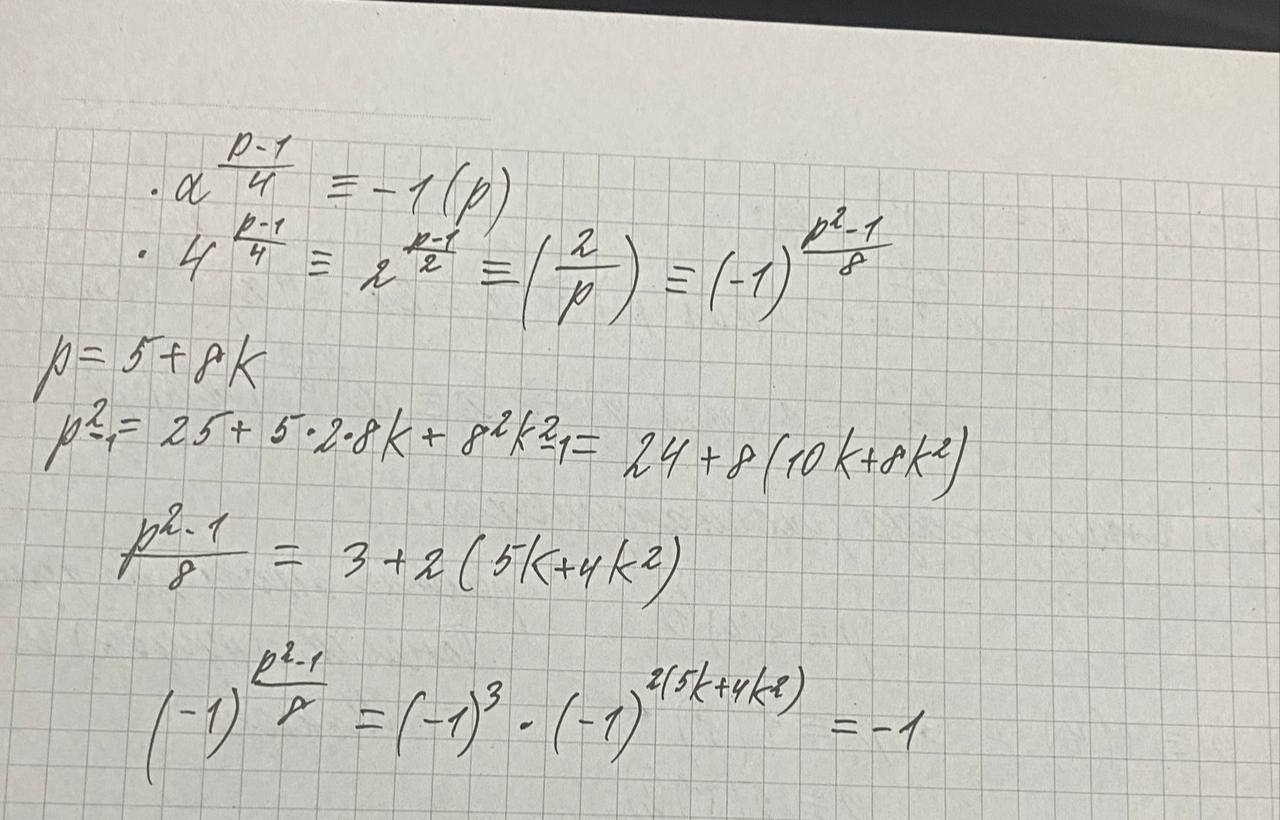 · a^{\frac{p-1}{4}} ≡ -1 (p)
· 4^{\frac{p-1}{4}} ≡ 2^{\frac{p-1}{2}} ≡ (\frac{2}{p}) ≡ (-1)^{\frac{p^2-1}{8}}
p = 5 + 8k
p^2 - 1 = 25 + 5·2·8k + 8^2k^2 - 1 = 24 + 8(10k + 8k^2)
\frac{p^2-1}{8} = 3 + 2(5k + 4k^2)
(-1)^{\frac{p^2-1}{8}} = (-1)^3 · (-1)^{2(5k+4k^2)} = -1